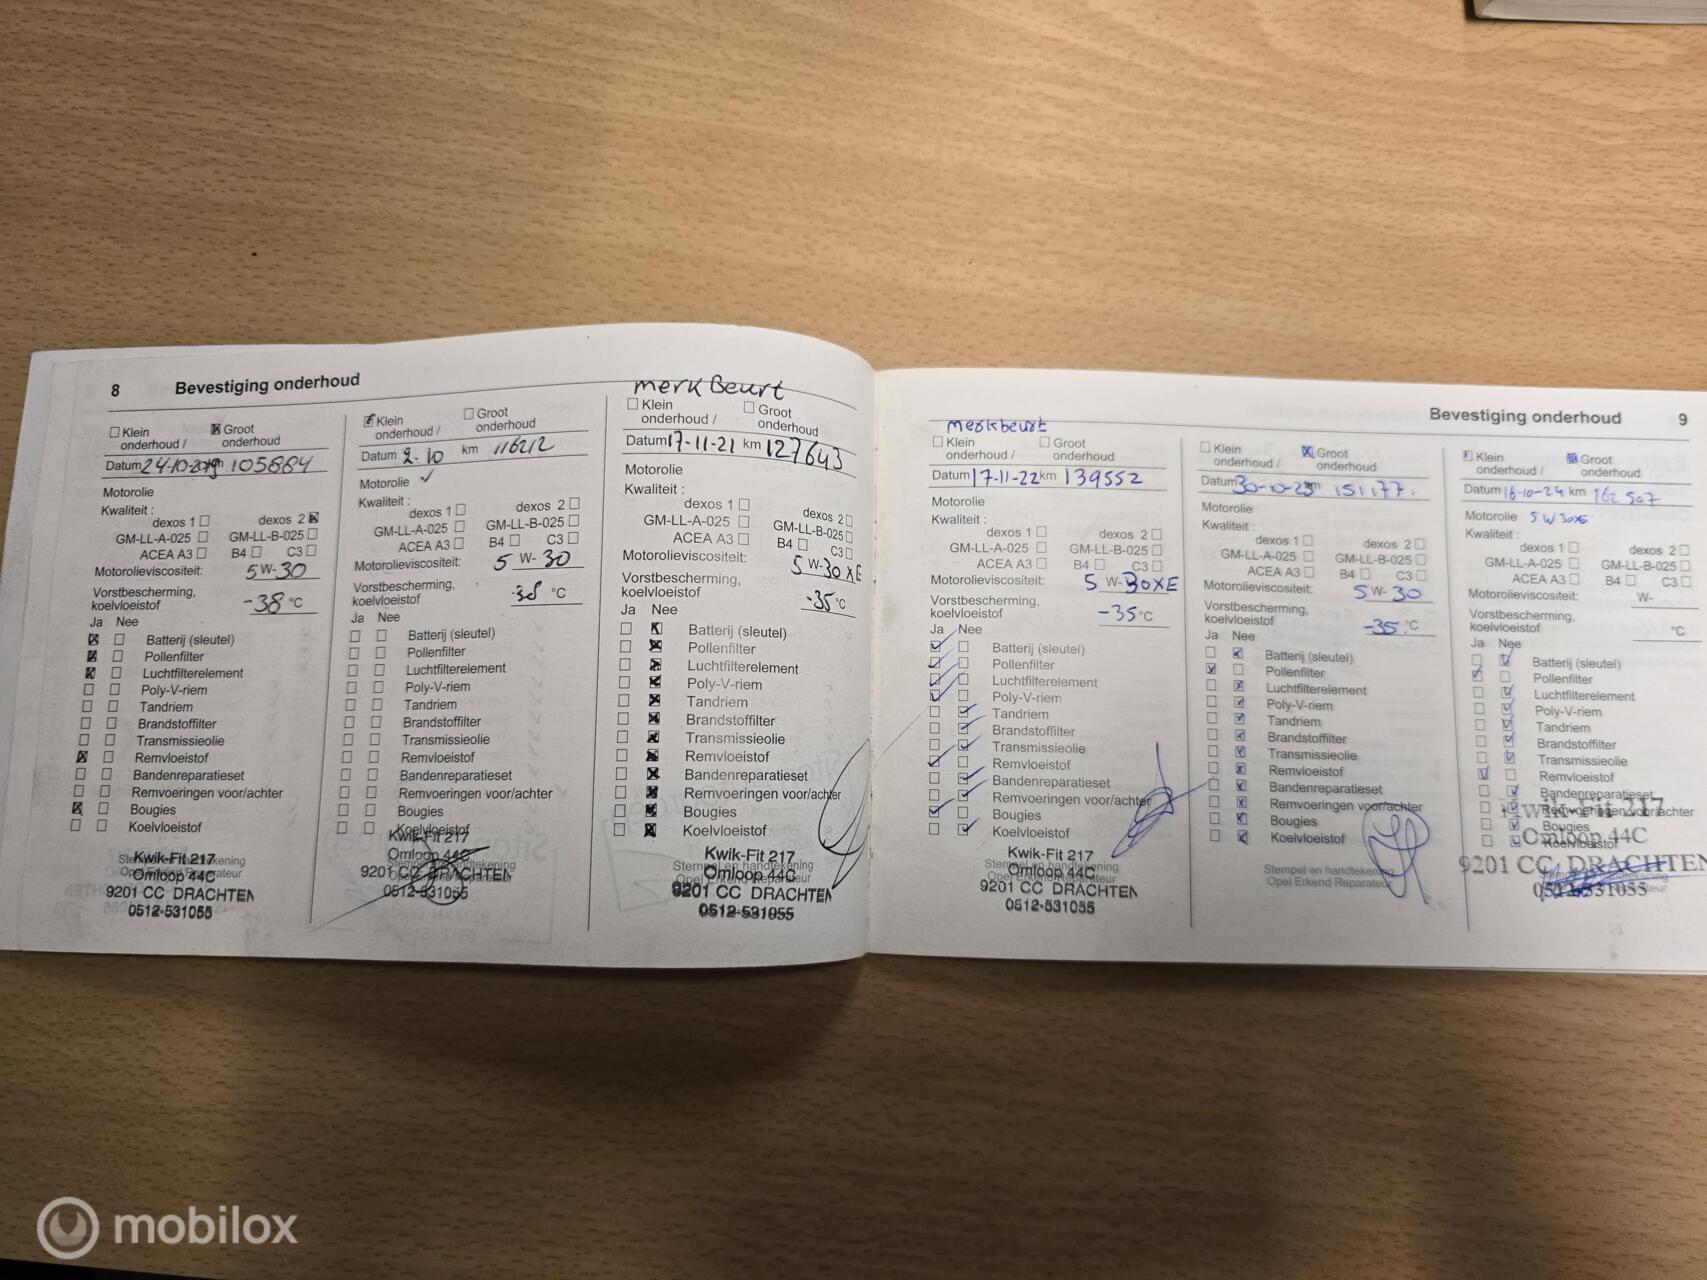 8 Bevestiging onderhoud
Klein onderhoud / Groot onderhoud
Datum 24-10-2019 km 105884
Motorolie
Kwaliteit :
dexos 1 dexos 2
GM-LL-A-025 GM-LL-B-025
ACEA A3 B4 C3
Motorolieviscositeit: 5 W-30
Vorstbescherming,
koelvloeistof -38 °C
Ja Nee
Batterij (sleutel)
Pollenfilter
Luchtfilterelement
Poly-V-riem
Tandriem
Brandstoffilter
Transmissieolie
Remvloeistof
Bandenreparatieset
Remvoeringen voor/achter
Bougies
Koelvloeistof
Stempel en handtekening
Opel Erkend Reparateur
Kwik-Fit 217
Omloop 44C
9201 CC DRACHTEN
0512-531055
Klein onderhoud / Groot onderhoud
Datum 2-10 km 116212
Motorolie ✓
Kwaliteit :
dexos 1 dexos 2
GM-LL-A-025 GM-LL-B-025
ACEA A3 B4 C3
Motorolieviscositeit: 5 W-30
Vorstbescherming,
koelvloeistof -38 °C
Ja Nee
Batterij (sleutel)
Pollenfilter
Luchtfilterelement
Poly-V-riem
Tandriem
Brandstoffilter
Transmissieolie
Remvloeistof
Bandenreparatieset
Remvoeringen voor/achter
Bougies
Koelvloeistof
Kwik-Fit 217
Omloop 44C
9201 CC DRACHTEN
0512-531055
merk Beurt
Klein onderhoud / Groot onderhoud
Datum 17-11-21 km 127643
Motorolie
Kwaliteit :
dexos 1 dexos 2
GM-LL-A-025 GM-LL-B-025
ACEA A3 B4 C3
Motorolieviscositeit: 5 W-30 XE
Vorstbescherming,
koelvloeistof -35 °C
Ja Nee
Batterij (sleutel)
Pollenfilter
Luchtfilterelement
Poly-V-riem
Tandriem
Brandstoffilter
Transmissieolie
Remvloeistof
Bandenreparatieset
Remvoeringen voor/achter
Bougies
Koelvloeistof
Stempel en handtekening
Opel Erkend Reparateur
Kwik-Fit 217
Omloop 44C
9201 CC DRACHTEN
0512-531055
Bevestiging onderhoud 9
merkbeurt
Klein onderhoud / Groot onderhoud
Datum 17-11-22 km 139552
Motorolie
Kwaliteit :
dexos 1 dexos 2
GM-LL-A-025 GM-LL-B-025
ACEA A3 B4 C3
Motorolieviscositeit: 5 W-30XE
Vorstbescherming,
koelvloeistof -35 °C
Ja Nee
Batterij (sleutel)
Pollenfilter
Luchtfilterelement
Poly-V-riem
Tandriem
Brandstoffilter
Transmissieolie
Remvloeistof
Bandenreparatieset
Remvoeringen voor/achter
Bougies
Koelvloeistof
Stempel en handtekening
Opel Erkend Reparateur
Kwik-Fit 217
Omloop 44C
9201 CC DRACHTEN
0512-531055
Klein onderhoud / Groot onderhoud
Datum 30-10-23 km 151177.
Motorolie
Kwaliteit :
dexos 1 dexos 2
GM-LL-A-025 GM-LL-B-025
ACEA A3 B4 C3
Motorolieviscositeit: 5 W-30
Vorstbescherming,
koelvloeistof -35 °C
Ja Nee
Batterij (sleutel)
Pollenfilter
Luchtfilterelement
Poly-V-riem
Tandriem
Brandstoffilter
Transmissieolie
Remvloeistof
Bandenreparatieset
Remvoeringen voor/achter
Bougies
Koelvloeistof
Stempel en handtekening
Opel Erkend Reparateur
Klein onderhoud / Groot onderhoud
Datum 16-10-24 km 162507
Motorolie 5W30XE
Kwaliteit :
dexos 1 dexos 2
GM-LL-A-025 GM-LL-B-025
ACEA A3 B4 C3
Motorolieviscositeit: W-
Vorstbescherming,
koelvloeistof °C
Ja Nee
Batterij (sleutel)
Pollenfilter
Luchtfilterelement
Poly-V-riem
Tandriem
Brandstoffilter
Transmissieolie
Remvloeistof
Bandenreparatieset
Remvoeringen voor/achter
Bougies
Koelvloeistof
Kwik-Fit 217
Omloop 44C
9201 CC DRACHTEN
0512-531055
mobilox